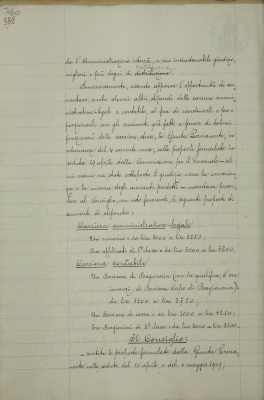 760
338
da l'Amministrazione stessa, a suo insindacabile giudizio,
migliori e più degni di distinzione.
Successivamente, essendo apparsa l'opportunità di au-
mentare anche alcuni altri stipendi della carriera ammi-
nistrativa-legale e contabile, al fine di
porzionarli con gli aumenti già fatti a favore di taluni
funzionari delle carriere stesse, la Giunta Permanente, in
adunanza del 4 corrente mese, sulle proposte formulate in
seduta 29 aprile dalla Commissione per il Personale - al
cui esame era stato sottoposto il giudizio circa la convenien-
za e la misura degli aumenti predetti - 
fare al Consiglio, con voto favorevole, le seguenti proposte di
aumenti di stipendio:
Carriera amministrativa-legale
Un - da lire 3000 a lire 3250;
Tre applicati di 1ª classe - da lire 3000 a lire 3200.
Carriera contabile
Un Economo di Ragioneria (con la qualifica, d'ora
innanzi, di Capo di Ragioneria) -
da lire 3500 a lire 3750.
Un - da lire 3000 a lire 3250;
Tre Ragionieri di 2ª classe - da lire 3000 a lire 3200.
Il Consiglio:
- sentite le proposte formulate dalla Giunta Perma-
nente nelle sedute del 20 aprile e del 4 maggio 1909;